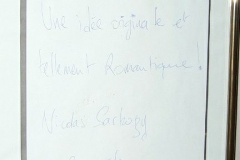 Une idée originale et
tellement Romantique !
Nicolas Sarkozy